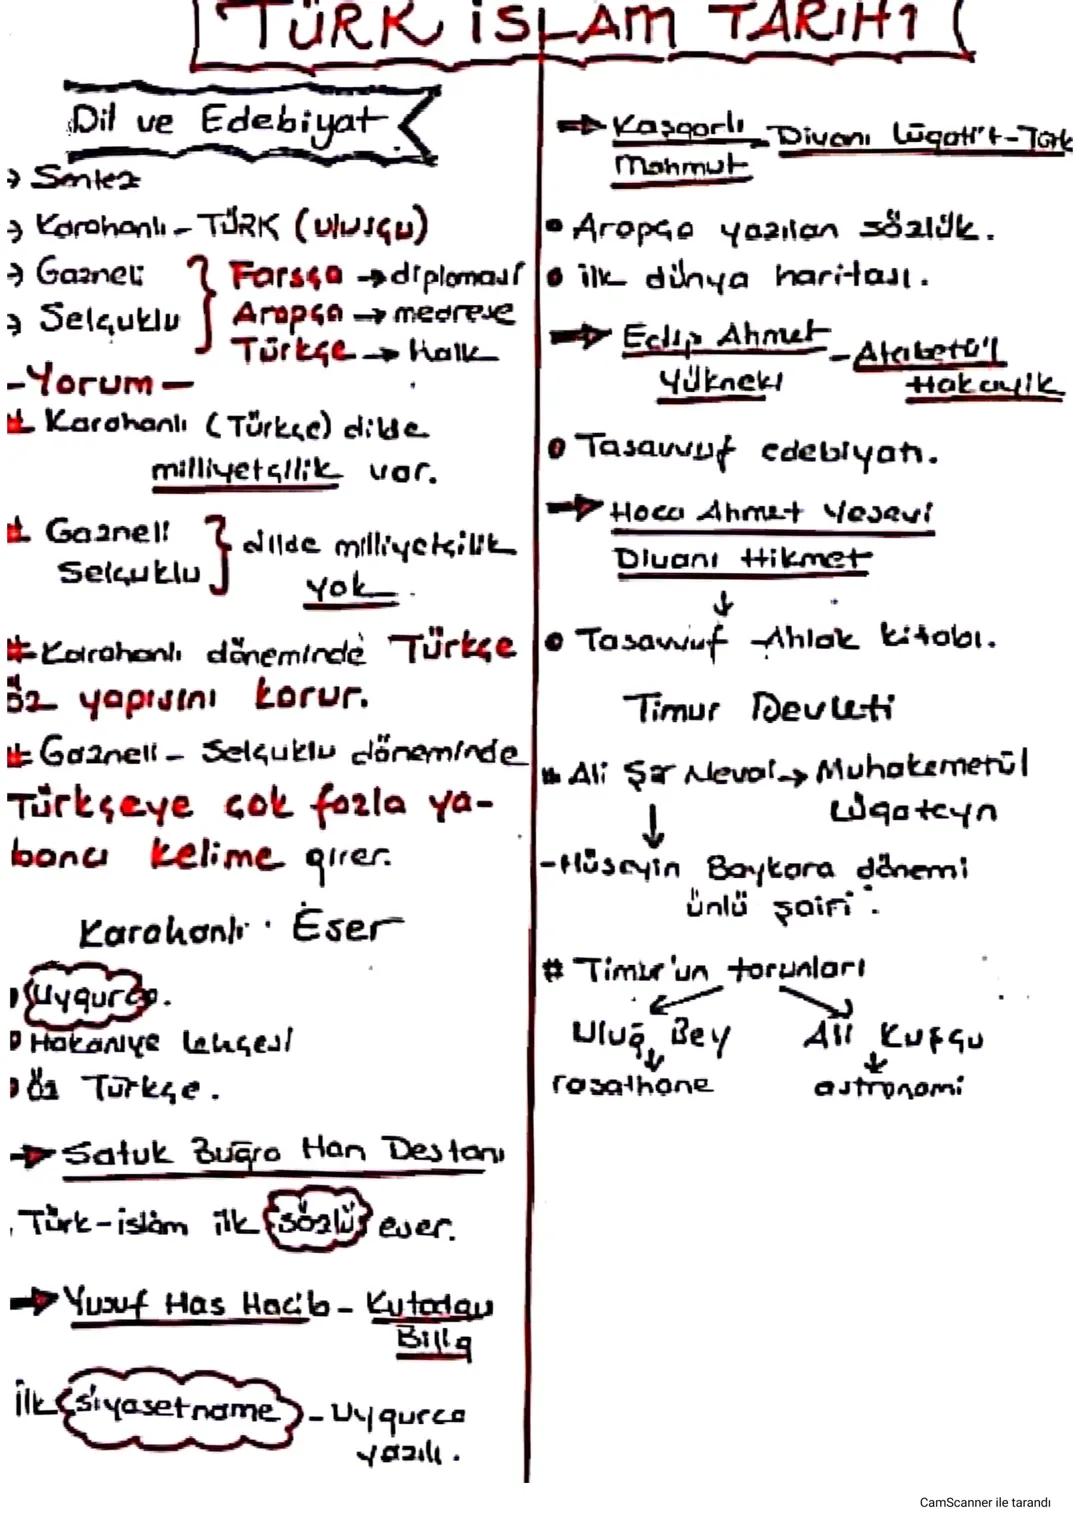 TÜRK İSLAM TARİHİ
Dil ve Edebiyat
→ Sentez
→ Karahanlı - TÜRK (ulusçu)
→ Gazneli
→ Selçuklu
Farsça → diplomasi
Arapça → medrese
Türkçe → Halk
- Yorum -
# Karahanlı (Türkçe) dilde
milliyetçilik var.
# Gazneli
Selçuklu
dilde milliyetçilik
yok.
# Karahanlı döneminde Türkçe
öz yapısını korur.
# Gazneli - Selçuklu döneminde
Türkçeye çok fazla ya-
bancı kelime girer.
Karahanlı Eser
Uygurca.
Hakaniye Lehçesi
öz Türkçe.
→ Satuk Buğra Han Destanı
. Türk-islâm ilk sözlü eser.
→ Yusuf Has Hacib - Kutadgu
Bilig
ilk siyasetname - Uygurca
yazılı.
→ Kaşgarlı
Mahmut - Divanı Lügati't-Türk
• Arapça yazılan sözlük.
• ilk dünya haritası.
→ Edip Ahmet
Yükneki - Atabetü'l
Hakayik
• Tasavvuf edebiyatı.
→ Hoca Ahmet Yesevi
Divanı Hikmet
↓
• Tasavvuf Ahlak kitabı.
Timur Devleti
# Ali Şir Nevai → Muhakemetül
Lügateyn
↓
- Hüseyin Baykara dönemi
ünlü şairi.
# Timur'un torunları
Uluğ Bey
Ali Kuşçu
rasathane
astronomi
CamScanner ile tarandı